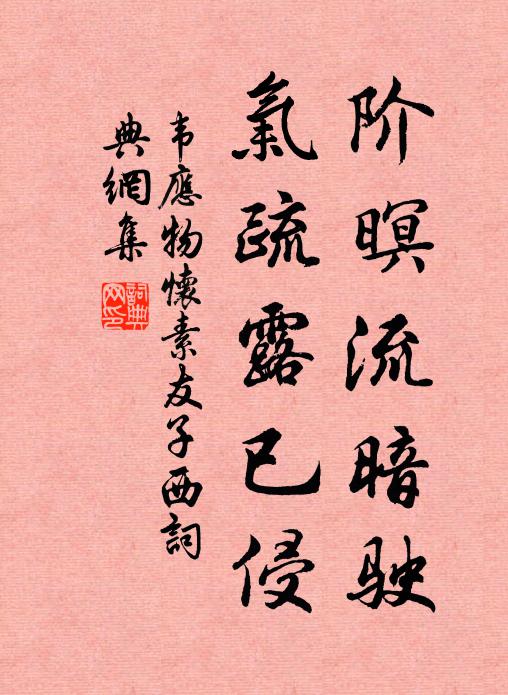 阶暝流暗驶
氣疏露已侵
韦應物懷素友子西詞
典網集
詞典网印